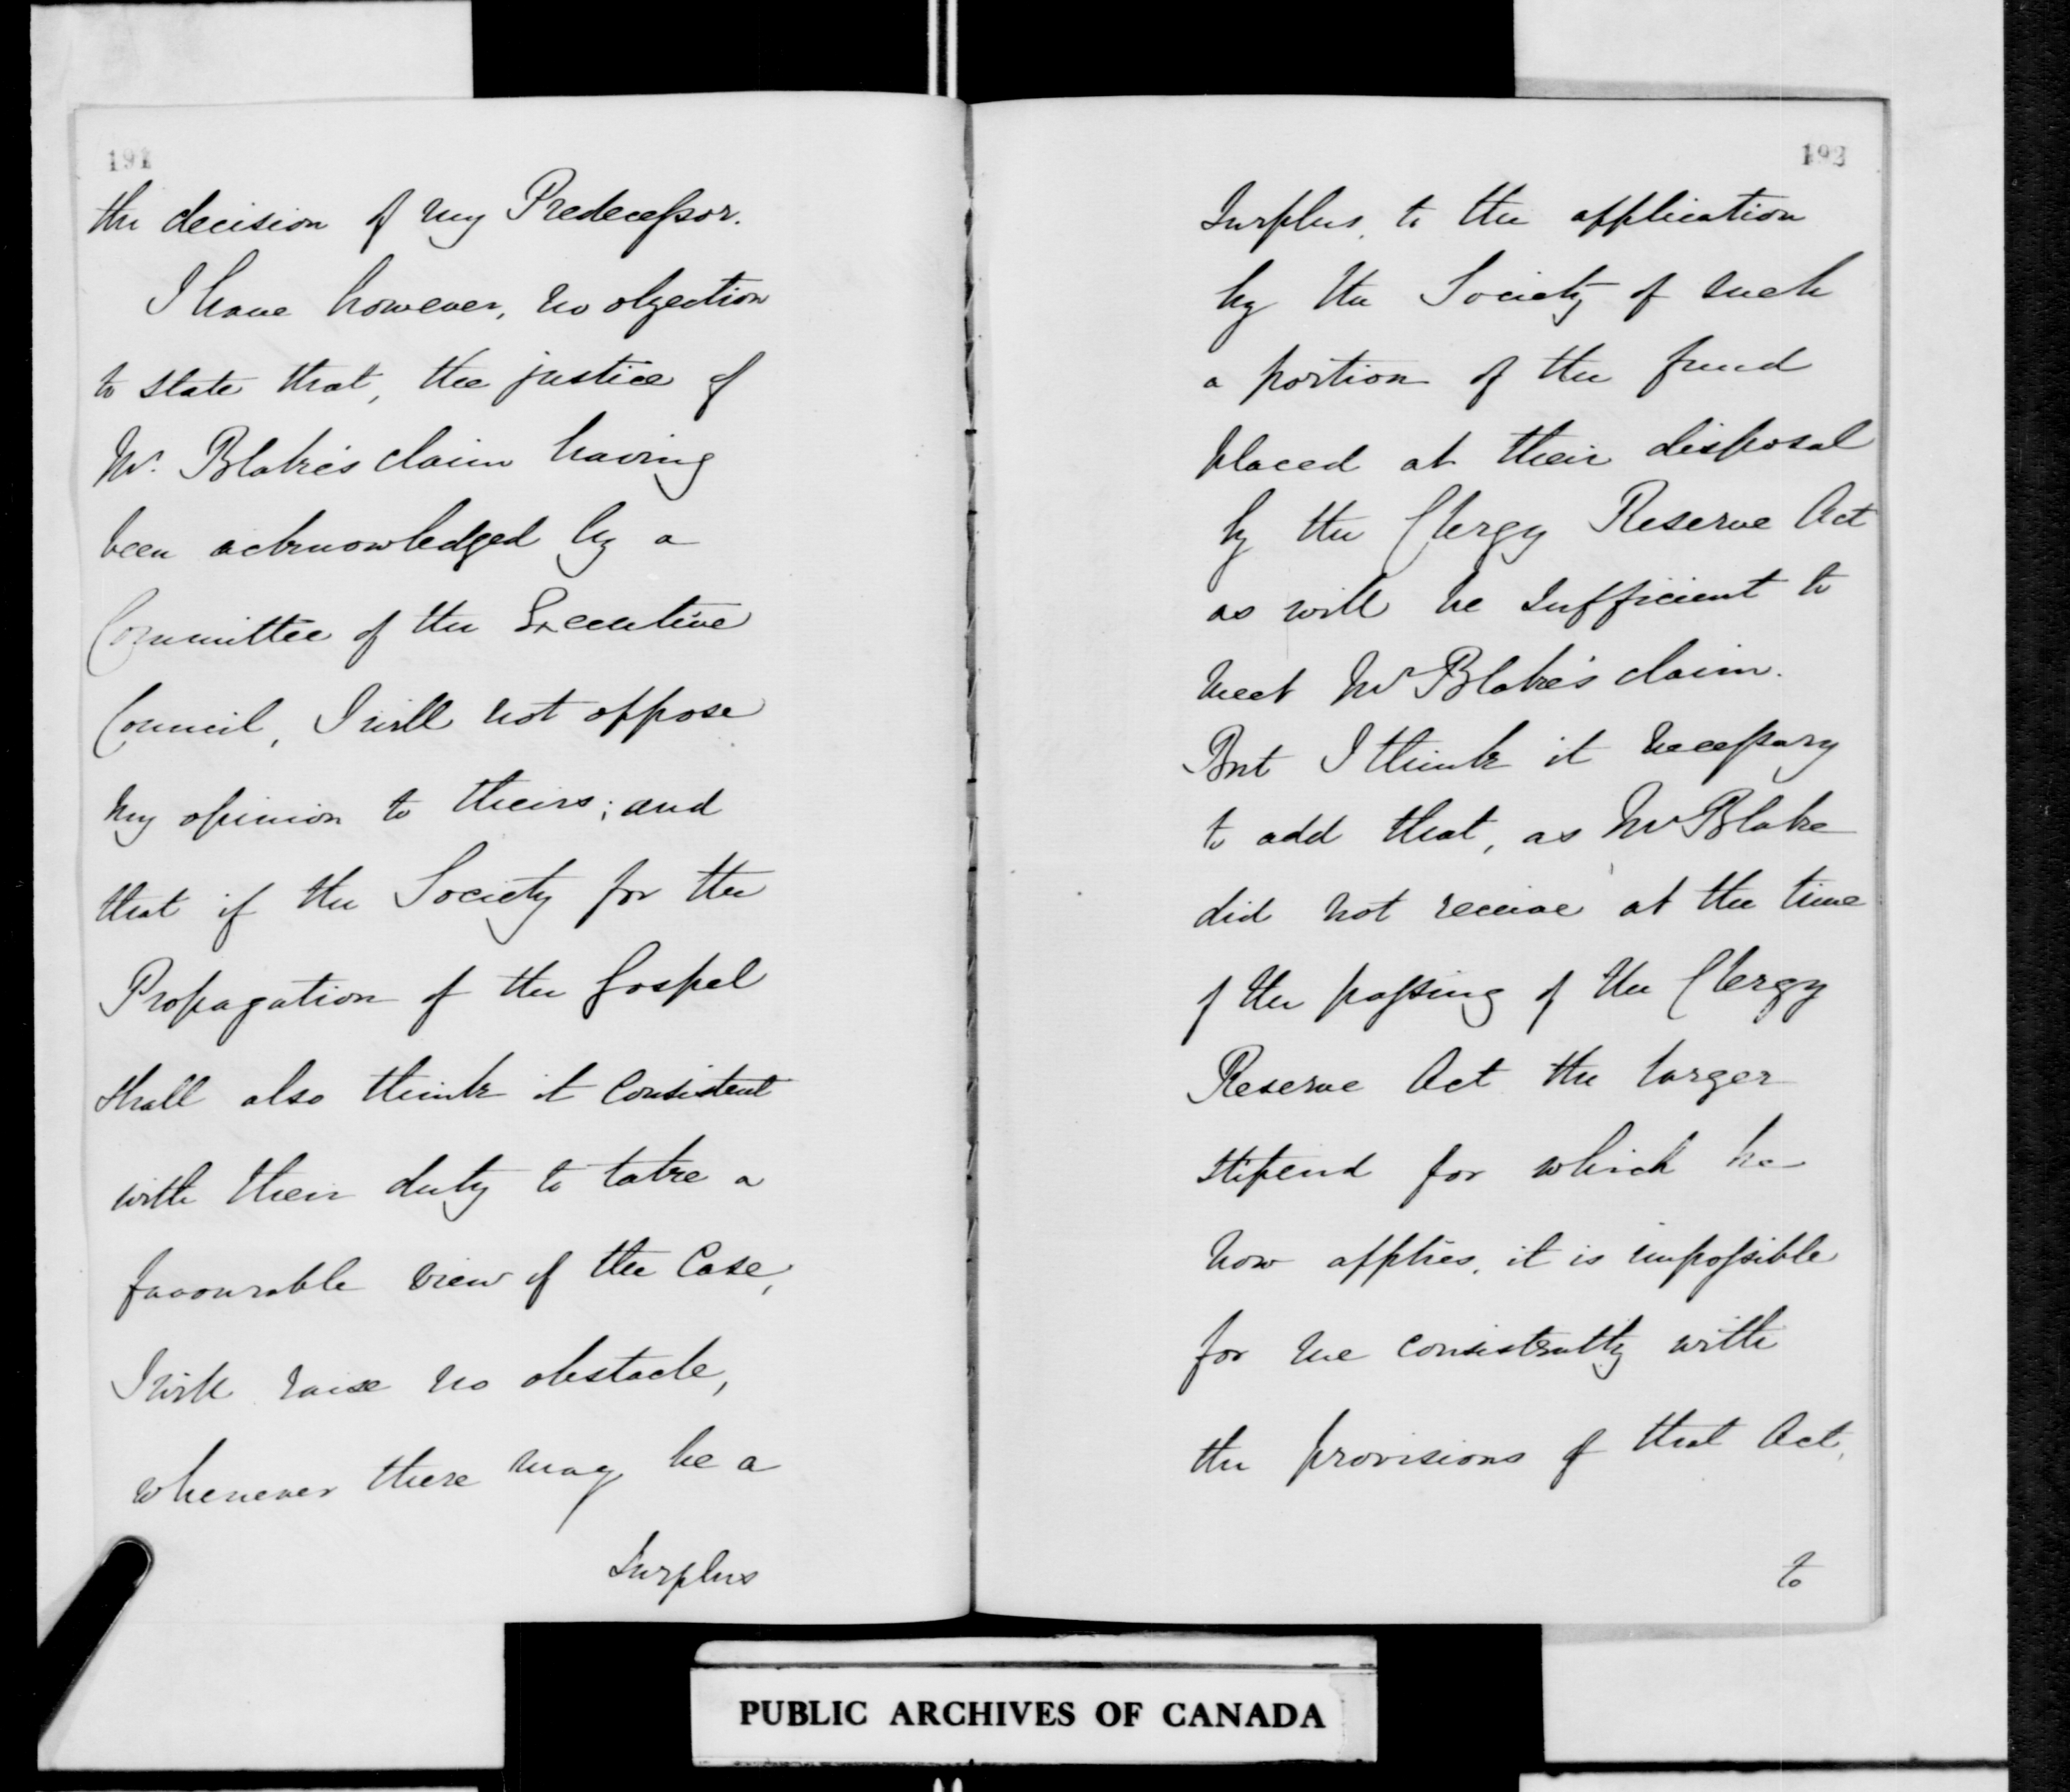 191
the decision of my Predecessor.
I have however, no objection
to state that, the justice of
Mr. Blake's claim having
been acknowledged by a
Committee of the Executive
Council, I will not oppose
my opinion to theirs; and
that if the Society for the
Propagation of the Gospel
shall also think it Consistent
with their duty to take a
favourable view of the Case,
I will raise no obstacle,
whenever there may be a
Surplus
192
Surplus, to the application
by the Society of such
a portion of the fund
placed at their disposal
by the Clergy Reserve Act
as will be sufficient to
meet Mr Blake's claim.
But I think it necessary
to add that, as Mr Blake
did not receive at the time
of the passing of the Clergy
Reserve Act the larger
stipend for which he
now applies, it is impossible
for me consistently with
the provisions of that Act,
to
PUBLIC ARCHIVES OF CANADA